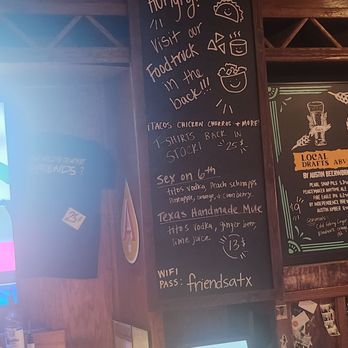 Hungry?
Visit our
Foodtruck
in the
back!!!
¡TACOS, CHICKEN CHURROS & MORE!
T-SHIRTS BACK IN
STOCK!
25$
Sex on 6th
titos vodka, Peach schnapps
Pineapple, orange, + cranberry.
Texas Handmade Mule
titos vodka, ginger beer,
lime juice
13$
WIFI
PASS: friendsatx
FRIENDS?
25
LOCAL
DRAFTS ABV
BY AUSTIN BEERWORKS
PEARL SNAP PILS
PEACEMAKER ANYTIME ALE
BY INDEPENDENCE
AUSTIN AMBER